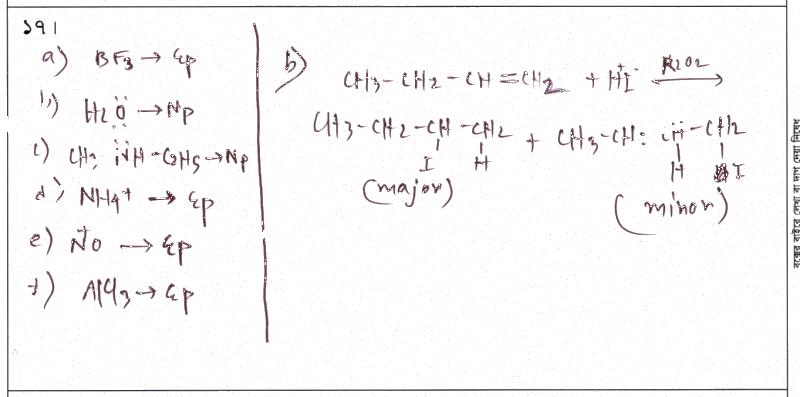 ১৭।
a) BF3 → Ep
b) H2Ö → Np
c) CH3 N̈H-C2H5 → Np
d) NH4+ → Ep
e) N+O → Ep
f) AlCl3 → Ep
b) CH3-CH2-CH=CH2 + H+I- R2O2 →
CH3-CH2-CH-CH2 + CH3-CH2-CH-CH2
I H H I
(major) (minor)
বক্সের বাইরে লেখা বা দাগ দেয়া নিষেধ